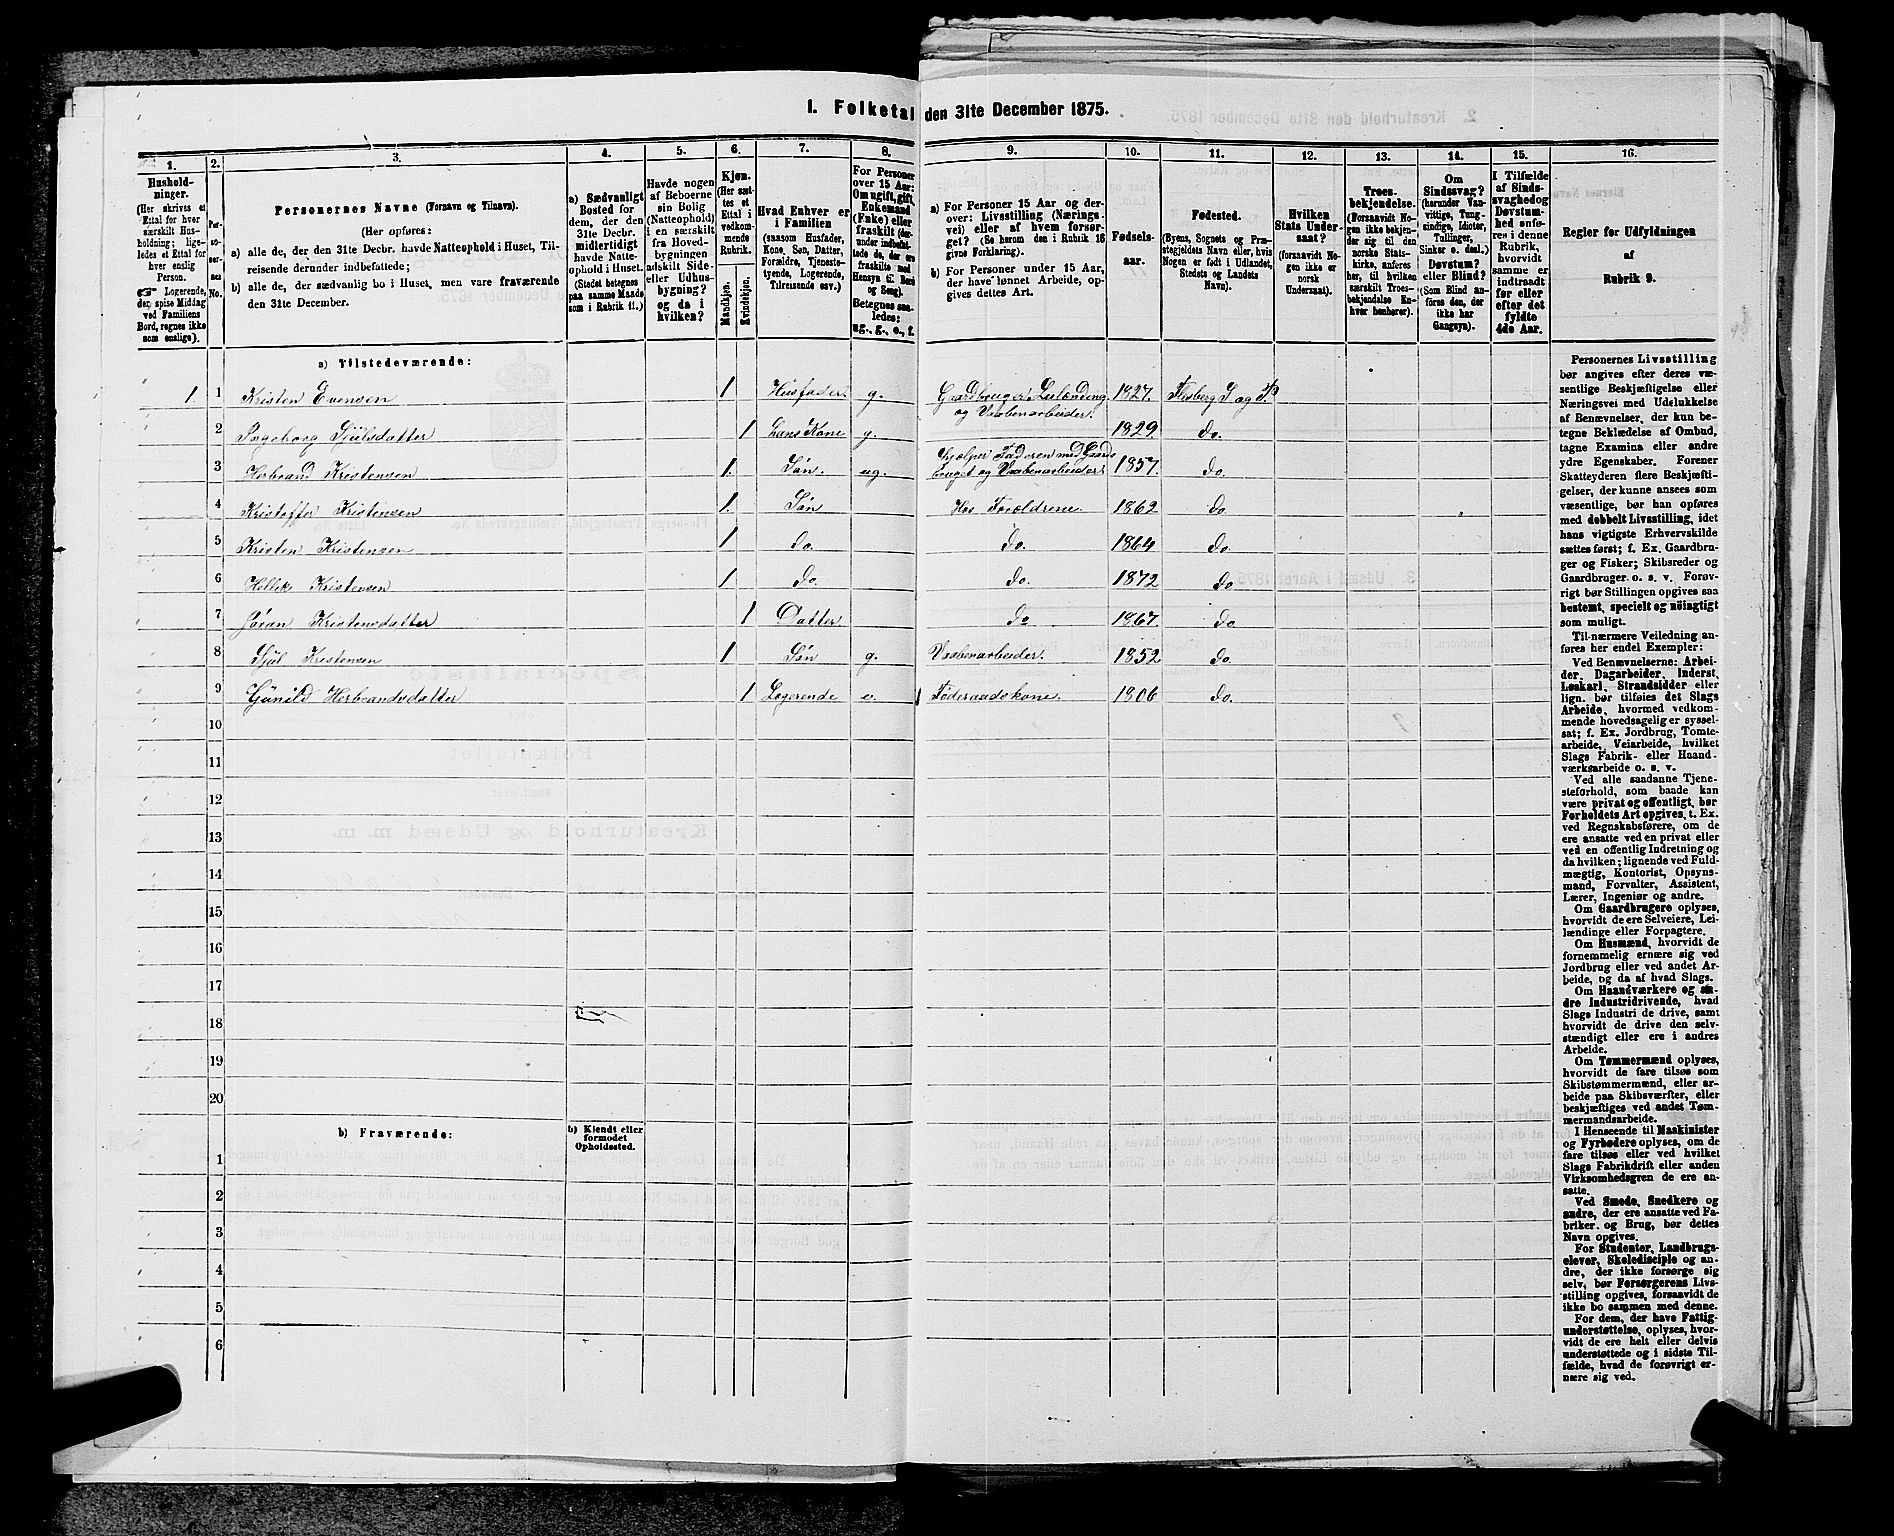 1. Folketal den 31te December 1875.
1. 2. 3. 4. 5. 6. 7. 8. 9. 10. 11. 12. 13. 14. 15. 16.
Hushold-
ninger.
(Her skrives et
Ettal for hver
særskilt Hus-
holdning; lige-
ledes et Ettal for
hver enslig
Person.
☞ Logerende,
der spise Middag
ved Familiens
Bord, regnes ikke
som enslige).
Per-
so-
ner-
nes
No.
Personernes Navne (Fornavn og Tilnavn).
(Her opføres:
a) alle de, der den 31te Decbr. havde Natteophold i Huset, Til-
reisende derunder indbefattede;
b) alle de, der sædvanlig bo i Huset, men vare fraværende
den 31te December.
a) Sædvanligt
Bosted for
dem, der den
31te Decbr.
midlertidigt
havde Natte-
ophold i Huset.
(Stedet betegnes
paa samme Maade
som i Rubrik 11.)
Havde nogen
af Beboerne
sin Bolig
(Natteophold)
i en særskilt
fra Hoved-
bygningen
adskilt Side-
eller Udhus-
bygning?
og da i
hvilken?
Kjøn.
(Her sæt-
tes et
Ettal i
vedkom-
mende
Rubrik.
Mandkjøn.
Kvindekjøn.
Hvad Enhver er
i Familien
(saasom Husfader,
Kone, Søn, Datter,
Forældre, Tjeneste-
tyende, Logerende,
Tilreisende osv.)
For Personer
over 15 Aar:
Om ugift, gift,
Enkemand
(Enke) eller
fraskilt (der-
under indbefat-
tede de, der ere
fraskilte med
Hensyn til Bord
og Seng).
Betegnes saa-
ledes:
ug., g., e., f.
a) For Personer 15 Aar og der-
over: Livsstilling (Nærings-
vei) eller af hvem forsør-
get? (Se herom den i Rubrik 16
givne Forklaring).
b) For Personer under 15 Aar,
der have lønnet Arbeide, op-
gives dettes Art.
Fødsels-
aar.
Fødested.
(Byens, Sognets og Præ-
stegjeldets Navn eller, hvis
Nogen er født i Udlandet,
Stedets og Landets
Navn).
Hvilken
Stats Under-
saat?
(forsaavidt No-
gen ikke er
norsk
Undersaat).
Troes-
bekjendelse.
(Forsaavidt No-
gen ikke bekjen-
der sig til den
norske Stats-
kirke, anføres
her, til hvilken
særskilt Troes-
bekjendelse En-
hver henhører).
Om
Sindssvag?
(herunder Van-
vittige, Tung-
sindige, Idioter,
Tullinger,
Sinker o. desl.)
Døvstum?
eller Blind?
(Som Blind an-
føres den, der
ikke har
Gangsyn).
I Tilfælde
af Sinds-
svaghed og
Døvstum-
hed anfø-
res i denne
Rubrik,
hvorvidt
samme er
indtraadt
før eller
efter det
fyldte
4de Aar.
Regler for Udfyldningen
af
Rubrik 9.
a) Tilstedeværende:
1. 1 Kristen Evensen 1 Husfader g. Gaardbruger, Leilænding og Vaabenarbeider. 1827. Flesberg S. og P.
2 Ingeborg Sjulsdatter 1 hans Kone g. 1829. do.
3 Herbrand Kristensen 1 Søn. ug. hjælper Faderen med Gaards Bruget og Vaabenarbeider. 1857. do.
4 Kristoffer Kristensen 1 Søn Hos Forældrene 1862 do
5 Kristen Kristensen 1 do. do. 1864 do.
6 Hellek Kristensen 1 do. do. 1872 do
7 Jøran Kristensdatter 1 Datter. do 1867 do
8 Sjul Kristensen 1 Søn g. Vaabenarbeider. 1852 do.
9 Gunild Herbrandsdatter 1 Logerende e. Føderaadskone. 1806 do.
10
11
12
13
14
15
16
17
18
19
20
b) Fraværende:
b) Kjendt eller
formodet
Opholdssted.
1
2
3
4
5
6
Personernes Livsstilling
bør angives efter deres væ-
sentlige Beskjæftigelse eller
Næringsvei med Udelukkelse
af Benævnelser, der kun be-
tegne Beklædelse af Ombud,
tagne Examina eller andre
ydre Egenskaber. Forener
Skatteyderen flere Beskjæfti-
gelser, der kunne ansees som
væsentlige, bør han opføres
med dobbelt Livsstilling, idet
hans vigtigste Erhvervskilde
sættes først; f. Ex. Gaardbru-
ger og Fisker; Skibsreder og
Gaardbruger. o. s. v. Forøv-
rigt bør Stillingen opgives saa
bestemt, specielt og nøiagtigt
som muligt.
Til nærmere Veiledning an-
føres her endel Exempler:
Ved Benævnelserne: Arbei-
der, Dagarbeider, Inderst,
Løskarl, Strandsidder eller
lign. bør tilføies det Slags
Arbeide, hvormed vedkom-
mende hovedsagelig er syssel-
sat; f. Ex. Jordbrug, Tomte-
arbeide, Veiarbeide, hvilket
Slags Fabrik- eller Haand-
værksarbeide o. s. v.
Ved alle saadanne Tjene-
steforhold, som baade kan
være privat og offentligt, bør
Forholdets Art opgives, t. Ex.
ved Regnskabsførere, om de
ere ansatte ved en privat eller
ved en offentlig Indretning og
da hvilken; lignende ved Fuld-
mægtig, Kontorist, Opsyns-
mand, Forvalter, Assistent,
Lærer, Ingeniør og andre.
Om Gaardbrugere oplyses,
hvorvidt de ere Selveiere, Lei-
lændinge eller Forpagtere.
Om Husmænd, hvorvidt de
fornemmelig ernære sig ved
Jordbrug eller ved andet Ar-
beide, og da af hvad Slags.
Om Haandværkere og an-
dre Industridrivende, hvad
Slags Industri de drive, samt
hvorvidt de drive den selv-
stændigt eller ere i andres
Arbeide.
Om Tømmermænd oplyses,
hvorvidt de fare tilsøs som
Skibstømmermænd, eller ar-
beide paa Skibsværfter, eller
beskjæftiges ved andet Tøm-
mermandsarbeide.
I Henseende til Maskinister
og Fyrbødere oplyses, om de
fare tilsøs eller ved hvilket
Slags Fabrikdrift eller anden
Virksomhedsgren de ere an-
satte.
Ved Smede, Snedkere og
andre, der ere ansatte ved Fa-
briker og Brug, bør dettes
Navn opgives.
For Studenter, Landbrugs-
elever, Skoledisciple og an-
dre, der ikke forsørge sig
selv, bør Forsørgerens Livs-
stilling opgives, forsaavidt de
ikke bo sammen med denne.
For dem, der have Fattig-
understøttelse, oplyses, hvor-
vidt de ere helt eller delvis
understøttede og i sidste Til-
fælde, hvad de forøvrigt er-
nære sig ved.